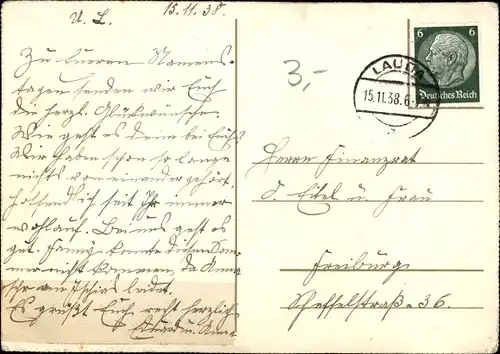 U. L. 15.11.38.
Zu Eurem Namens-
tagen senden wir Euch
die herzl. Glückwünsche.
Wie geht es denn bei Euch?
Wir haben schon so lange
nichts voneinander gehört.
Hoffend seit Ihr immer
wohlauf. Bei uns geht es
gut. Fanny konnte diesen Som-
mer nicht kommen, da Anna
sehr an Ischias leidet.
Es grüßt Euch recht herzlich
Eduard u. Anna
3,-
6 6
Deutsches Reich
LAUDA
15.11.38.6-7N
Herrn Finanzrat
J. Eitel u. Frau
Freiburg
Scheffelstraße 36.